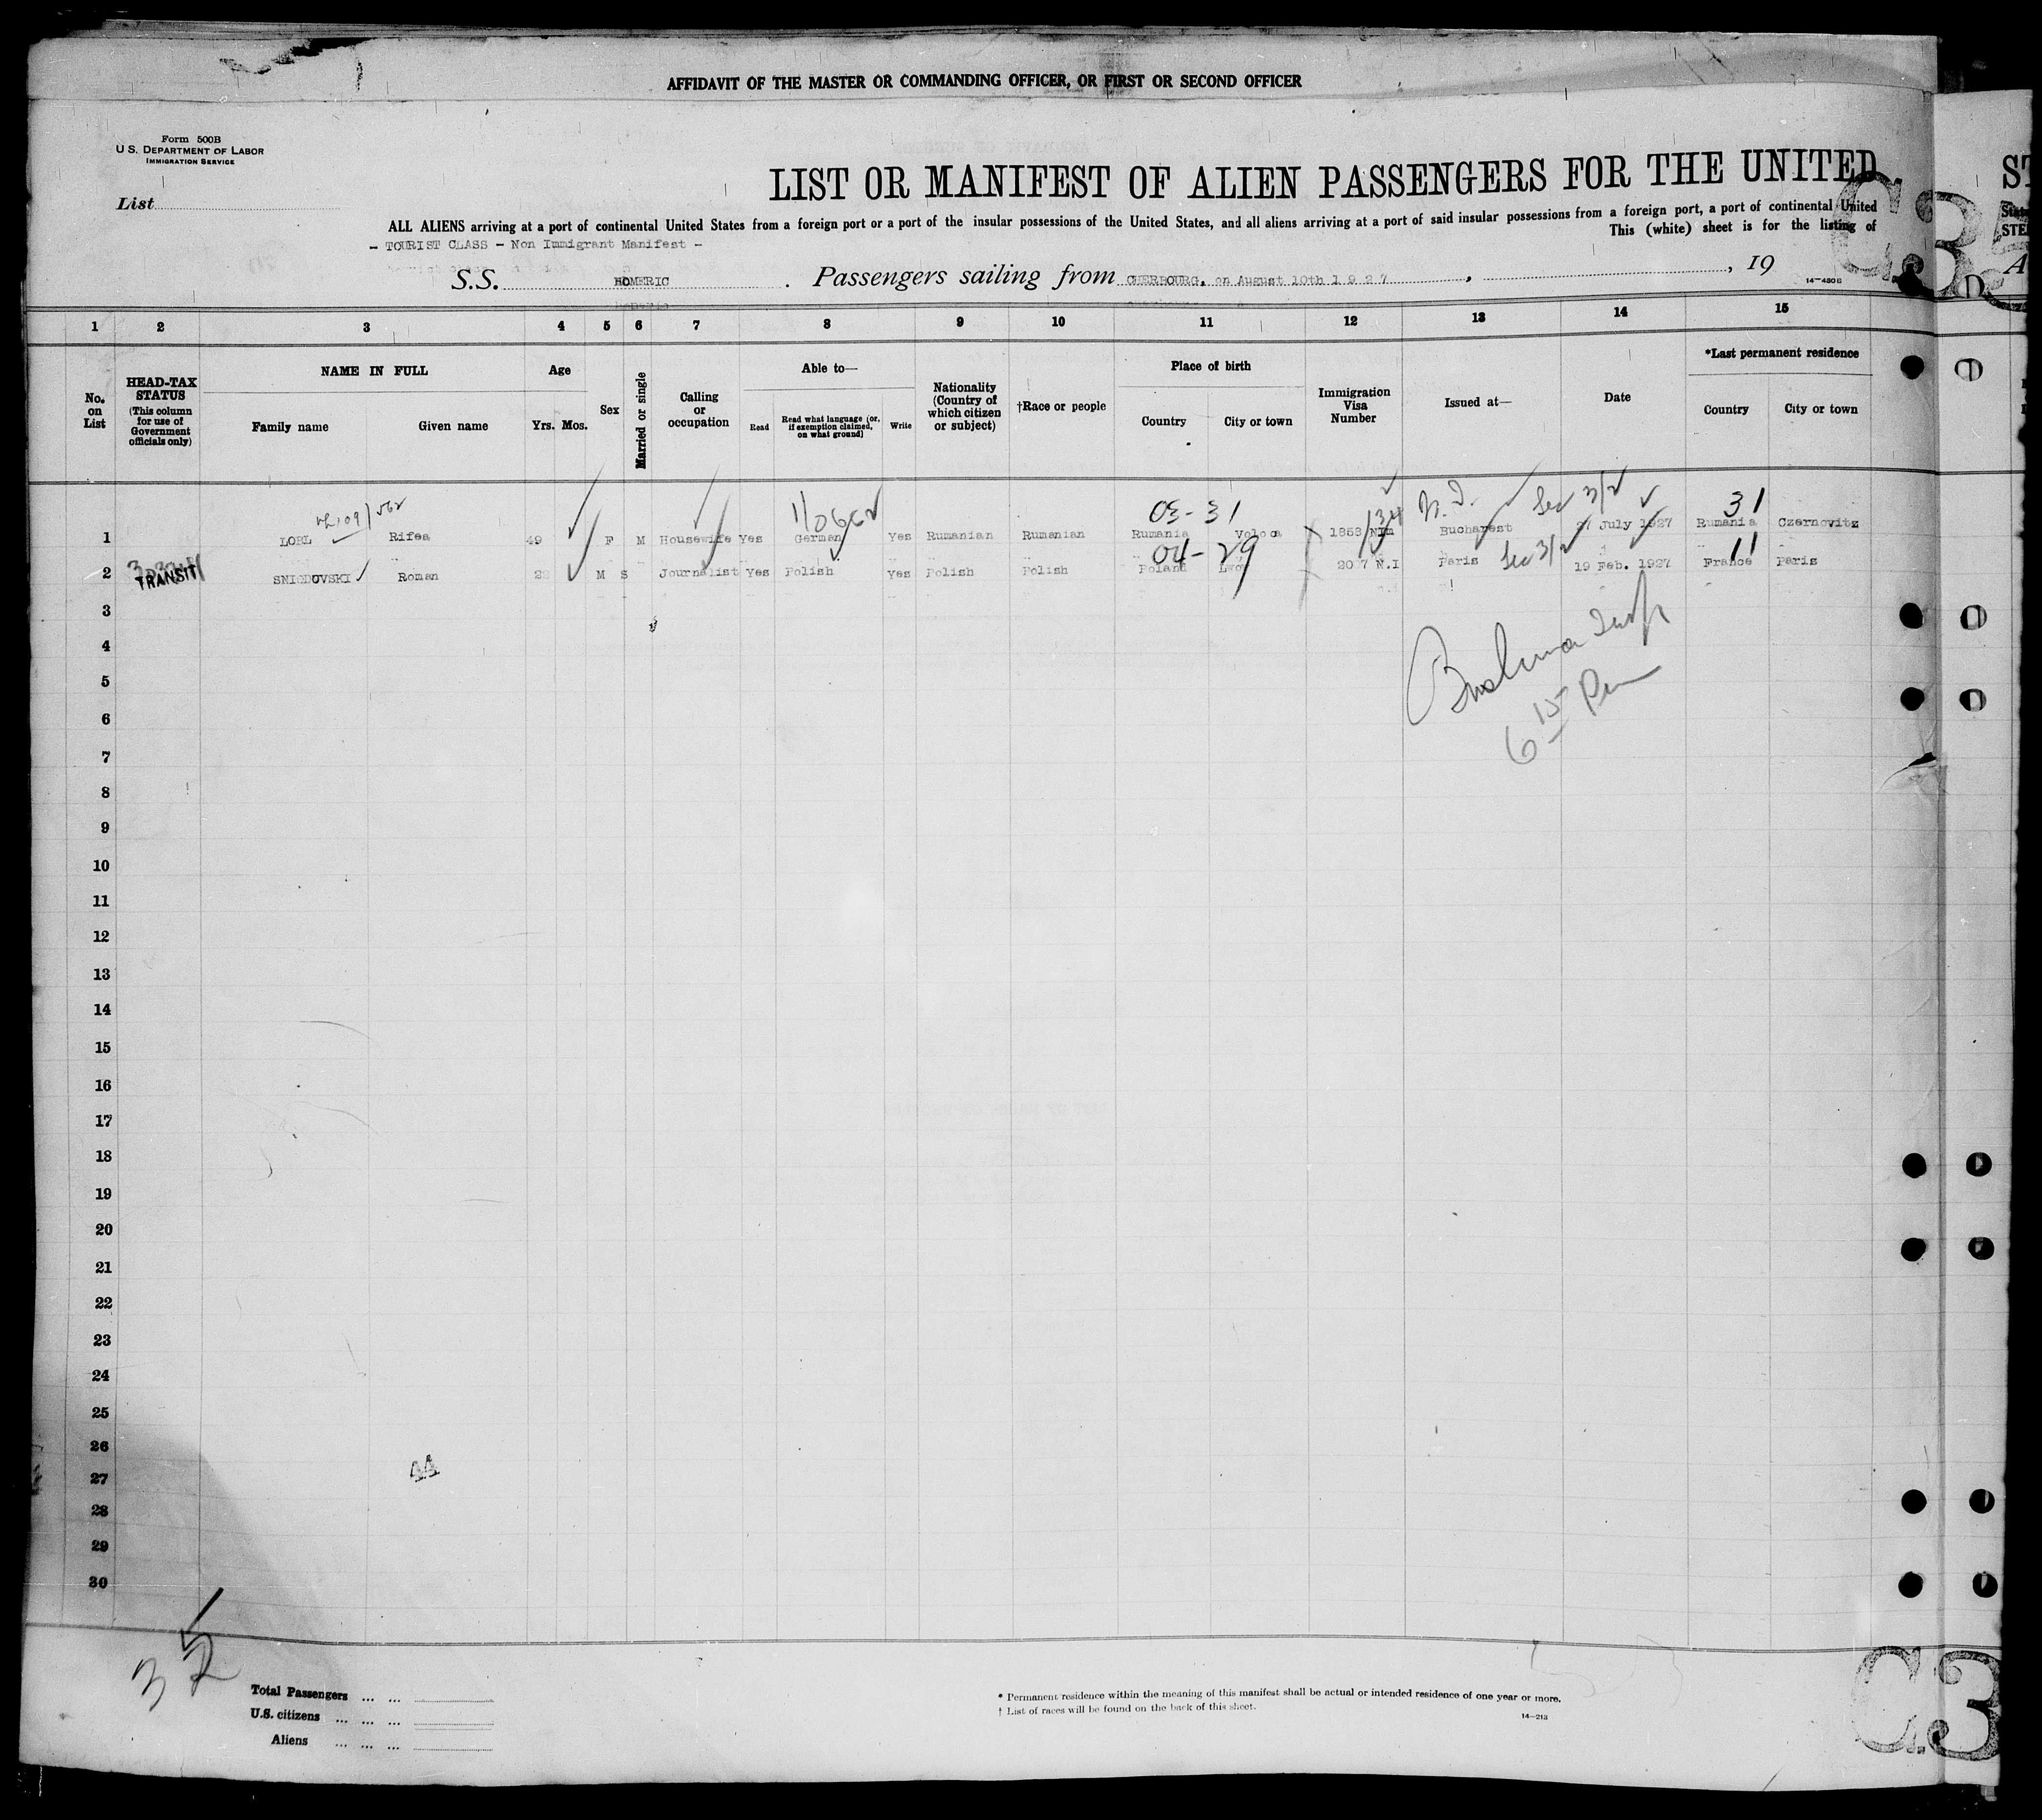 AFFIDAVIT OF THE MASTER OR COMMANDING OFFICER, OR FIRST OR SECOND OFFICER
Form 500B
U.S. DEPARTMENT OF LABOR
IMMIGRATION SERVICE
List
LIST OR MANIFEST OF ALIEN PASSENGERS FOR THE UNITED
ALL ALIENS arriving at a port of continental United States from a foreign port or a port of the insular possessions of the United States, and all aliens arriving at a port of said insular possessions from a foreign port, a port of continental United
This (white) sheet is for the listing of
- TOURIST CLASS - Non Immigrant Manifest -
S.S. HOMERIC . Passengers sailing from CHERBOURG, on August 10th 1 9 2 7 , , 19
14-480 B
1 2 3 4 5 6 7 8 9 10 11 12 13 14 15
No. on List
HEAD-TAX STATUS
(This column for use of Government officials only)
NAME IN FULL
Family name Given name
Age
Yrs. Mos.
Sex
Married or single
Calling or occupation
Able to—
Read
Read what language (or, if exemption claimed, on what ground)
Write
Nationality (Country of which citizen or subject)
†Race or people
Place of birth
Country City or town
Immigration Visa Number
Issued at—
Date
*Last permanent residence
Country City or town
03-31 N.I. Sec 3/2 31
1 LOBL Rifea 49 F M Housewife Yes German Yes Rumanian Rumanian Rumania 1858 Bucharest 27 July 1927 Rumania Czernovitz
04-29 Sec 3/2 11
2 TRANSIT SNIODOVSKI Roman M S Journalist Yes Polish Yes Polish Polish Poland Lwow 20 7 N.I Paris 19 Feb. 1927 France Paris
3
4
5
6
6 15 Pm
7
8
9
10
11
12
13
14
15
16
17
18
19
20
21
22
23
24
25
26
27
44
28
29
30
Total Passengers ... ...
U.S. citizens ... ... ...
Aliens ... ... ...
* Permanent residence within the meaning of this manifest shall be actual or intended residence of one year or more.
† List of races will be found on the back of this sheet.
14-213